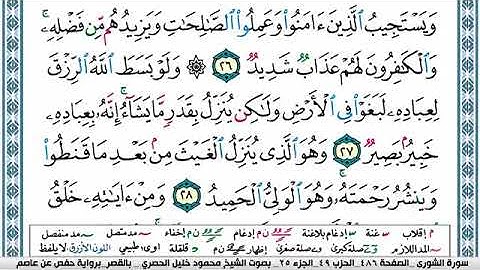 وَيَسْتَجِيبُ الَّذِينَ ءَامَنُوا۟ وَعَمِلُوا۟ الصَّٰلِحَٰتِ وَيَزِيدُهُم مِّن فَضْلِهِۦۚ
وَالْكَٰفِرُونَ لَهُمْ عَذَابٌ شَدِيدٌ ٢٦ ۞ وَلَوْ بَسَطَ اللَّهُ الرِّزْقَ
لِعِبَادِهِۦ لَبَغَوْا۟ فِى الْأَرْضِ وَلَٰكِن يُنَزِّلُ بِقَدَرٍ مَّا يَشَآءُۚ إِنَّهُۥ بِعِبَادِهِۦ
خَبِيرٌۢ بَصِيرٌ ٢٧ وَهُوَ الَّذِى يُنَزِّلُ الْغَيْثَ مِنۢ بَعْدِ مَا قَنَطُوا۟
وَيَنشُرُ رَحْمَتَهُۥۚ وَهُوَ الْوَلِىُّ الْحَمِيدُ ٢٨ وَمِنْ ءَايَٰتِهِۦ خَلْقُ
م إقلاب غنة إدغام بلاغنة ن م إدغام إخفاء مد متصل مد منفصل
المد اللازم صلة كبرى صلة صغرى إظهار ن م قلقلة اوى طبيعي اللون الأزرق لا يلفظ
سورة الشورى ـ الصفحة ٤٨٦ ـ الحزب ٤٩ ـ الجزء ٢٥ ـ بصوت الشيخ محمود خليل الحصري ـ بالقصر ـ برواية حفص عن عاصم